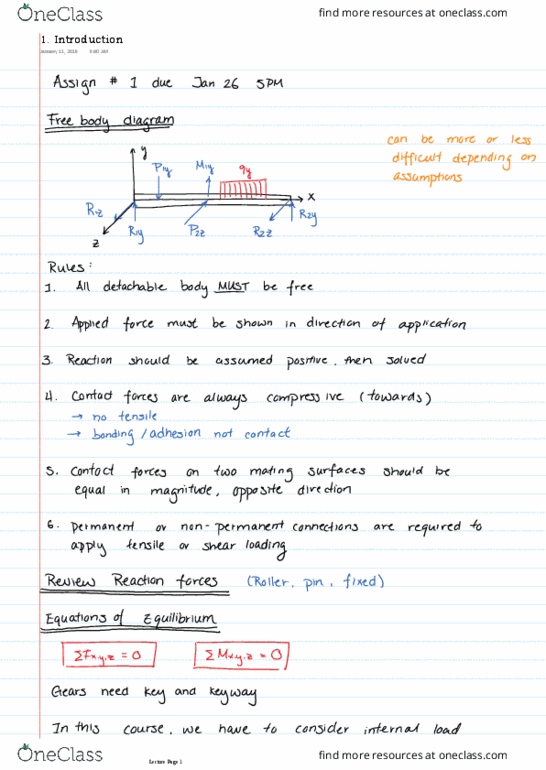 OneClass
find more resources at oneclass.com
1. Introduction
January 12, 2018
Assign # 1 due Jan 26 5PM
Free body diagram
can be more or less
difficult depending on
assumptions
y
P1y
M1y
qy
x
R1z
R2y
R1y
P2z
R2z
z
Rules:
1. All detachable body MUST be free
2. Applied force must be shown in direction of application
3. Reaction should be assumed positive, then solved
4. Contact forces are always compressive (towards)
→ no tensile
→ bonding/adhesion not contact
5. Contact forces on two mating surfaces should be
equal in magnitude, opposite direction
6. permanent or non-permanent connections are required to
apply tensile or shear loading
Review Reaction forces (Roller, pin, fixed)
Equations of Equilibrium
ΣFx,y,z = 0
ΣMx,y,z = 0
Gears need key and keyway
In this course, we have to consider internal load
OneClass
Lecture Page 1
find more resources at oneclass.com